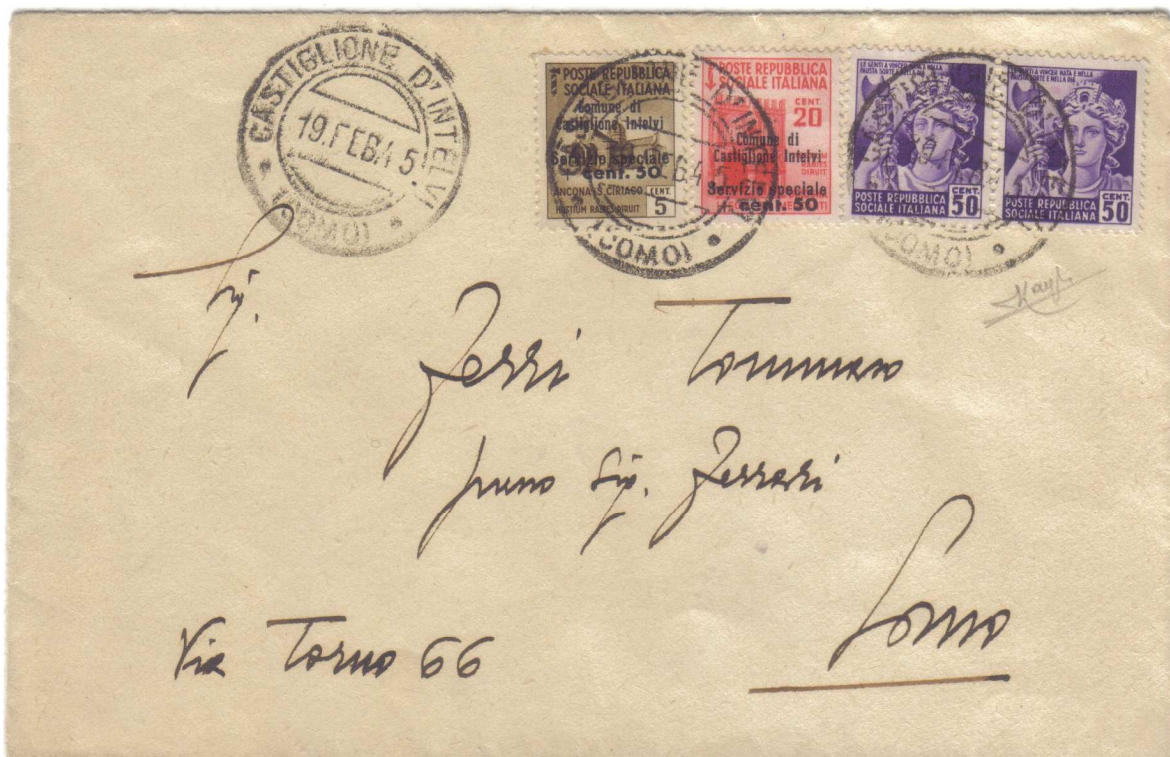 CASTIGLIONE D'INTELVI
19.FEB.45.
(COMO)
POSTE REPUBBLICA
SOCIALE ITALIANA
Comune di
Castiglione Intelvi
Servizio speciale
cent. 50
ANCONA · S. CIRIACO
HOSTIUM RABIES DIRUIT
CENT.
5
POSTE REPUBBLICA
SOCIALE ITALIANA
CENT.
20
Comune di
Castiglione Intelvi
Servizio speciale
cent. 50
POSTE REPUBBLICA
SOCIALE ITALIANA
CENT.
50
POSTE REPUBBLICA
SOCIALE ITALIANA
CENT.
50
(COMO)
(COMO)
Sig.
Ferri Tommaso
presso Sig. Ferrari
Como
Via Torno 66